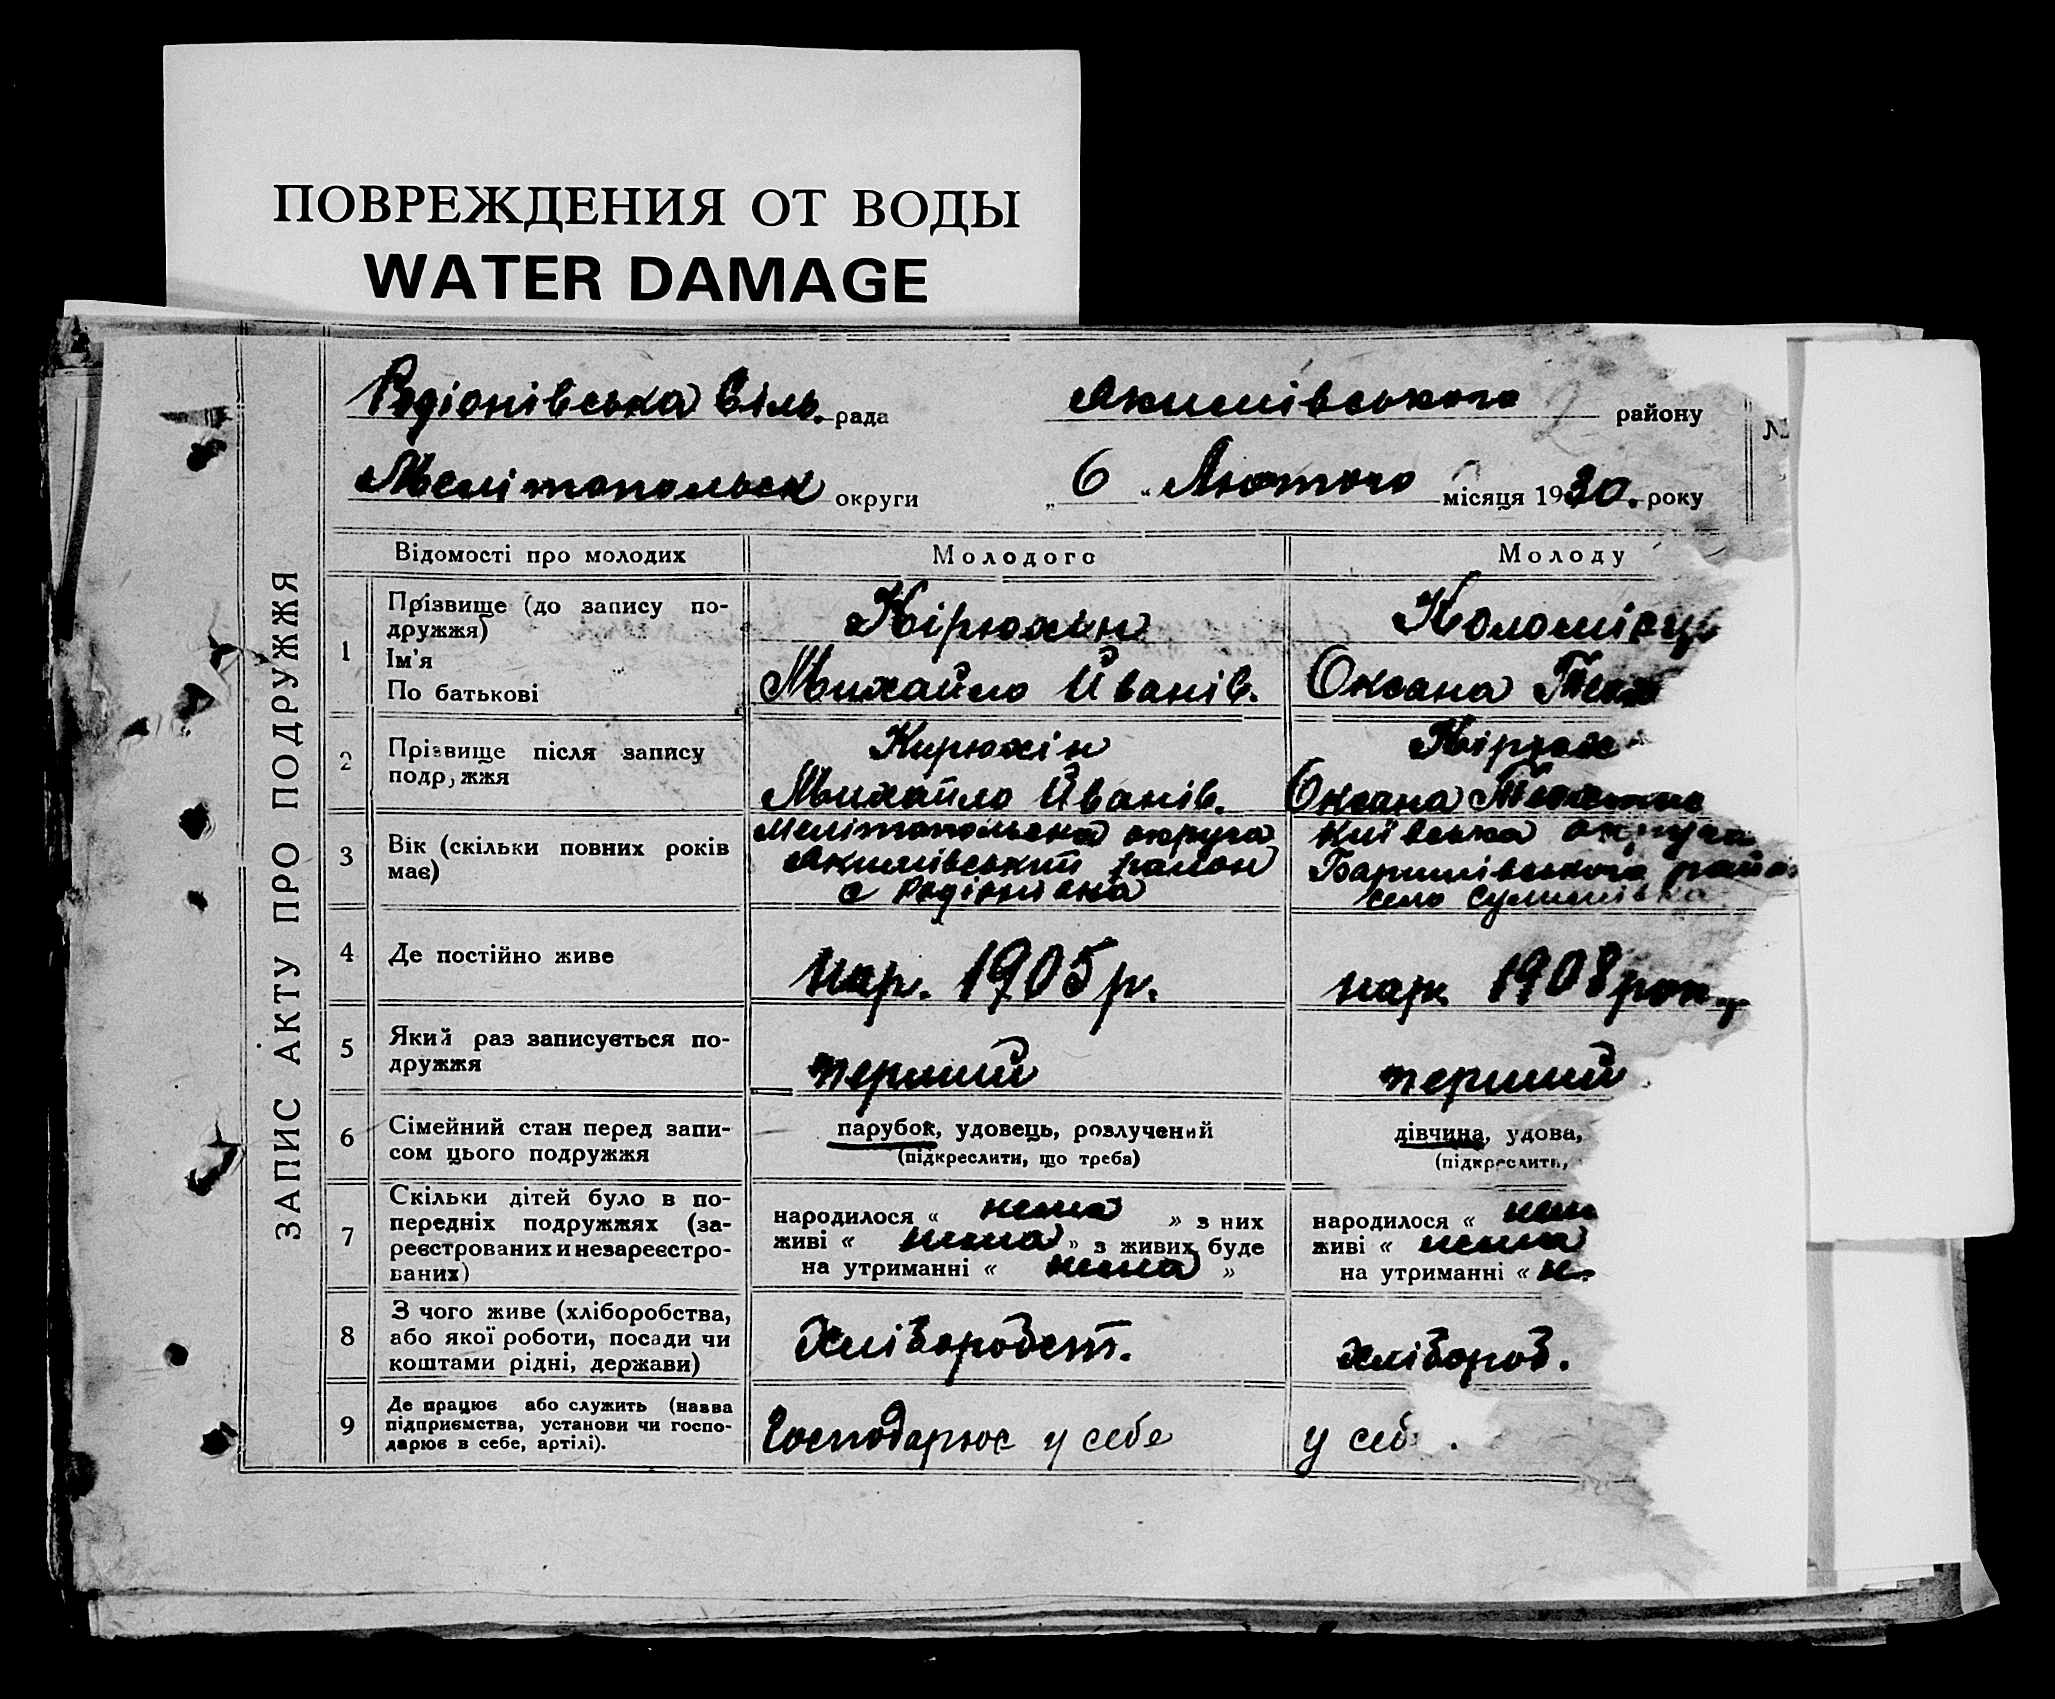 ПОВРЕЖДЕНИЯ ОТ ВОДЫ
WATER DAMAGE
Родіонівська сіль. рада Якимівського району №
Мелітопольськ округи „ 6 “ Лютого місяця 1930. року
ЗАПИС АКТУ ПРО ПОДРУЖЖЯ
Відомості про молодих Молодого Молоду
1 Прізвище (до запису по-
дружжя)
Ім'я
По батькові
Кірюхин
Михайло Йванів.
Коломієць
Оксана
2 Прізвище після запису
подружжя
Кирюхін
Михайло Йванів.
Кірюх
Оксана
3 Вік (скільки повних років
має)
Мелітопольська округа
Якимівський район
с Родіонівка
Київська округа
Баришівського
село Сулимівка
4 Де постійно живе нар. 1905 р. нар. 1908 рок
5 Який раз записується по-
дружжя
перший перший
6 Сімейний стан перед запи-
сом цього подружжя
парубок, удовець, розлучений
(підкреслити, що треба)
дівчина, удова,
(підкреслить,
7 Скільки дітей було в по-
передніх подружжях (за-
реєстрованих и незареєстро-
ваних)
народилося « нема » з них
живі « нема » з живих буде
на утриманні « нема »
народилося « нем
живі « нема
на утриманні « н.
8 З чого живе (хліборобства,
або якої роботи, посади чи
коштами рідні, держави)
хліборобст. хлібороб.
9 Де працює або служить (назва
підприємства, установи чи госпо-
дарює в себе, артілі).
Господарює у себе у себ